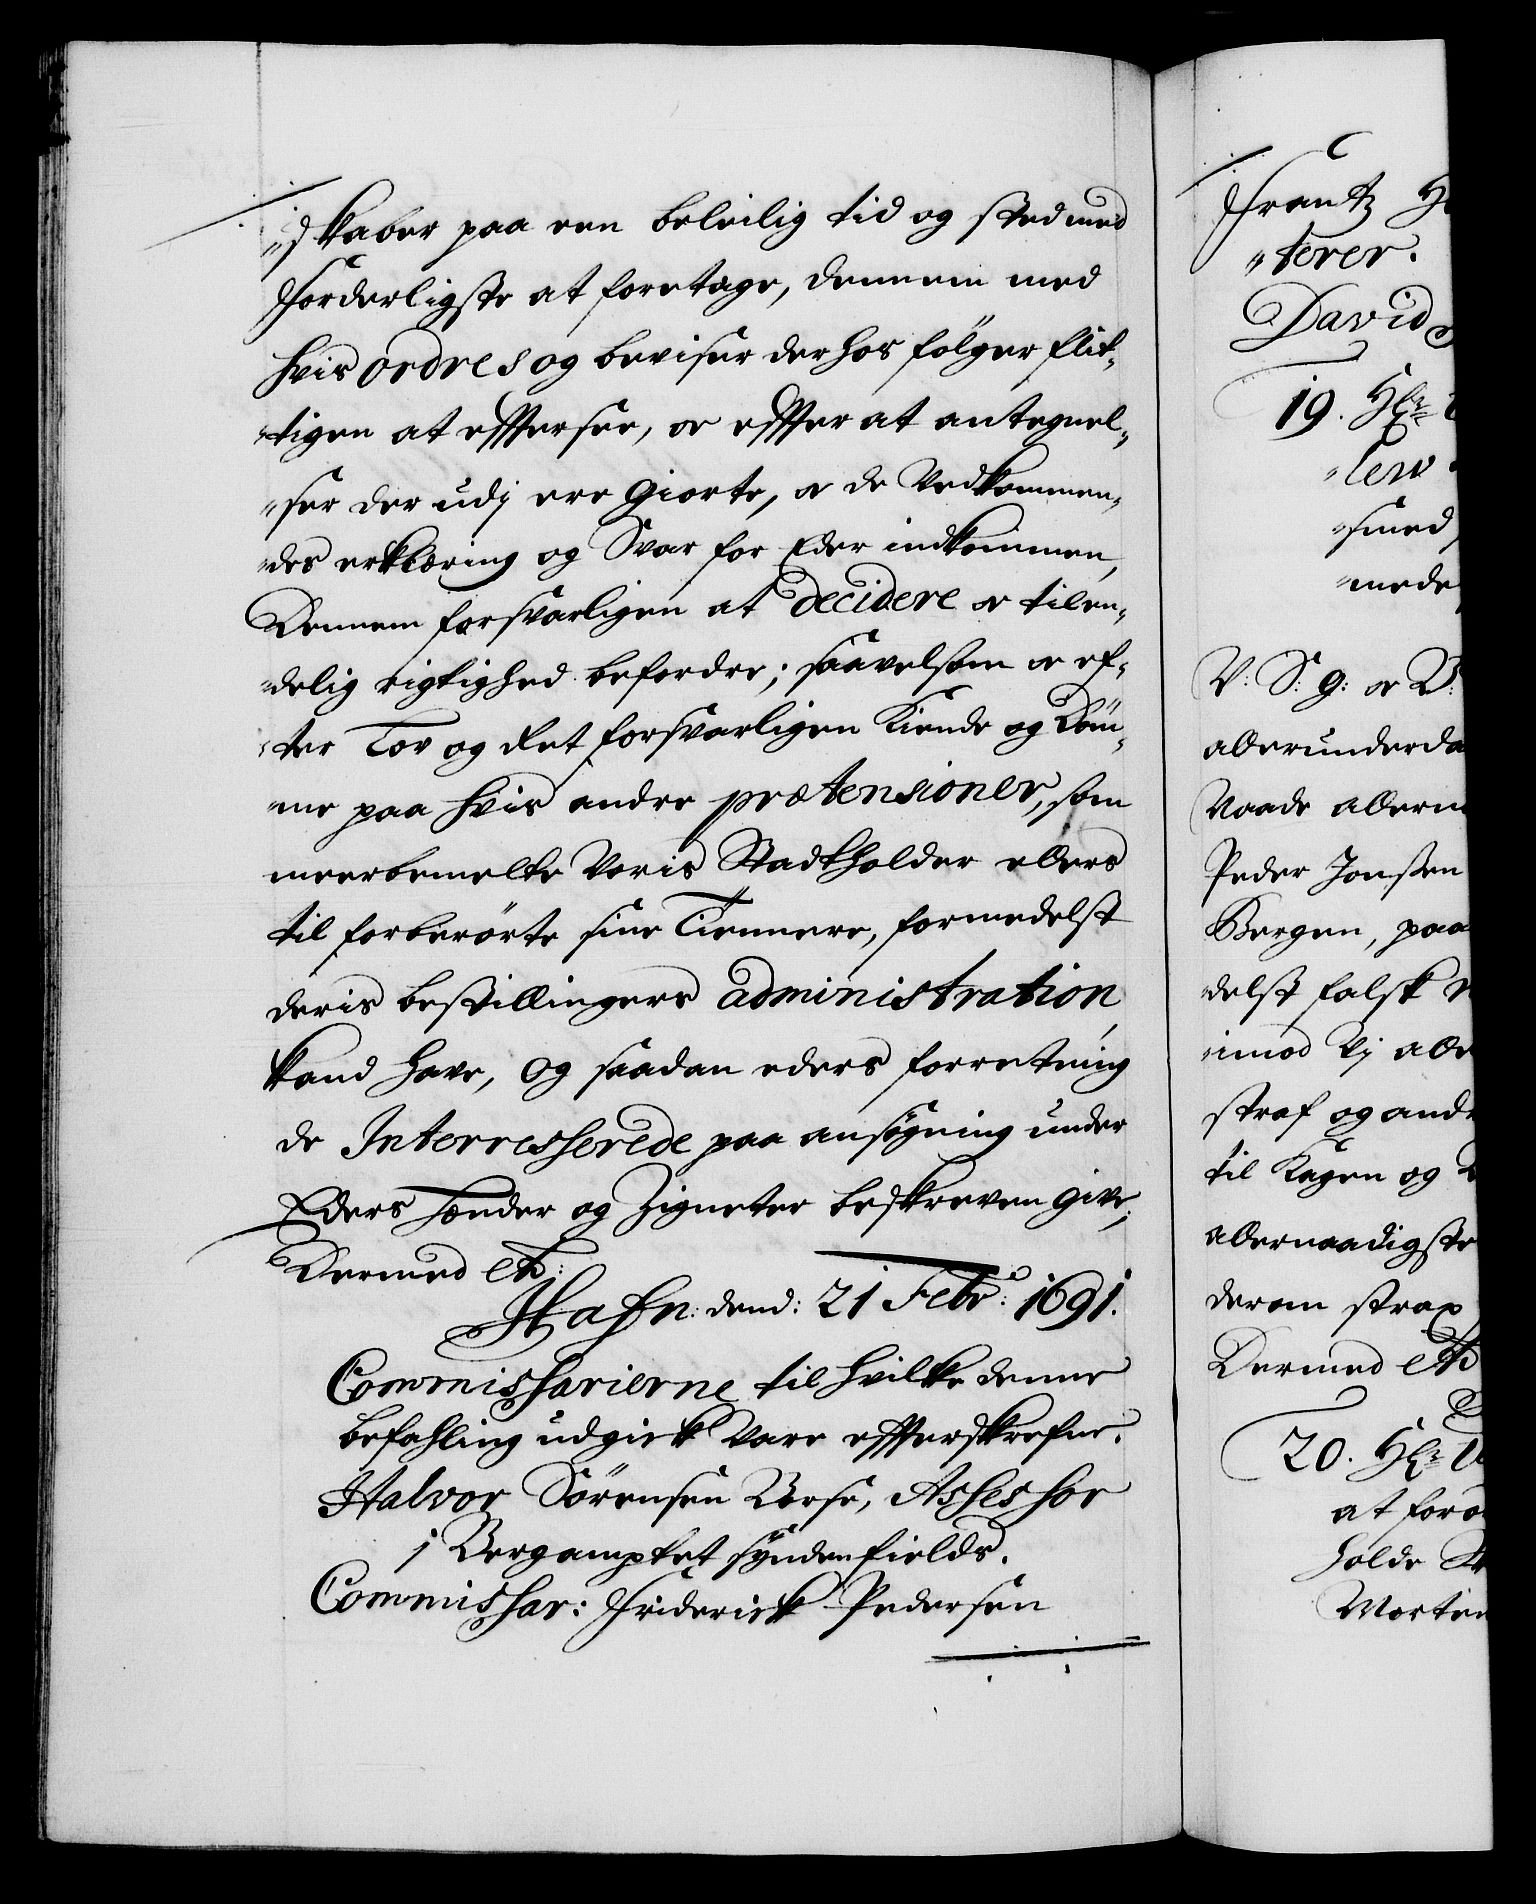 "skaber paa een beleilig tid og sted med
forderligste at foretage, dennem med
hvis ordres og beviser der hos fölger flit-
"tigen at efftersee, oc effter at antegnel-
"ser der udj ere giorte, oc de Vedkommen-
"des erklæring og Svar for Eder indkommen,
Dennem forsvarligen at decidere oc til en-
"delig rigtighed befordre; saavelsom oc ef-
"ter Lov og Ret forsvarligen Kiende og Döm-
"me paa hvis andre prætensioner, som
meerbemelte Voris Stadtholder ellers
til forberörte sine Tiennere, formedelst
deris bestillingers administration
kand have, og saadan eders forretning
de Interresserede paa ansögning under
Eders hænder og Zigneter beskreven give;
Dermed etc:
Hafn: dend: 21 Febr: 1691.
Commissarierne til hvilke denne
befahling udgick vare effterskrefne.
Halvor Sörensen Borse, Assessor
i Bergamptet syndenfields.
Commissar: Friderick Pedersen
Frantz
"terer.
David
19. Hr
"lew
"smed
"mede
V: S: G: oc V:
allerunderda
Naade allern
Peder Jonssen
Bergen, paa
"delst falsk
"imod Vj alle
straf og andr
til Kagen og
allernaadigste
derom strax
Dermed etc
20. Hr
at foro
holde
Morten